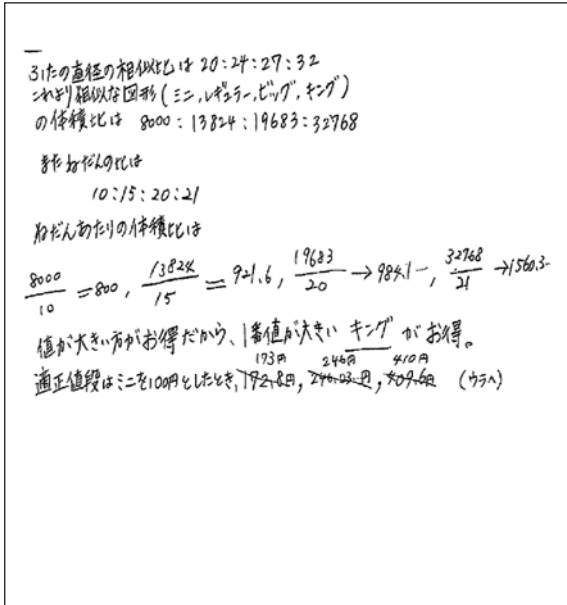 ふたの直径の相似比は 20:24:27:32
これより相似な図形(ミニ,レギュラー,ビッグ,キング)
の体積比は 8000:13824:19683:32768
またねだんの比は
10:15:20:21
ねだんあたりの体積比は
8000/10 =800, 13824/15 = 921.6, 19683/20 →984.1…, 32768/21 →1560.3…
値が大きい方がお得だから、1番値が大きい キング がお得。
173円 246円 410円
適正値段はミニを100円としたとき、172.8円, 246.03…円, 409.6円 (ウラへ)